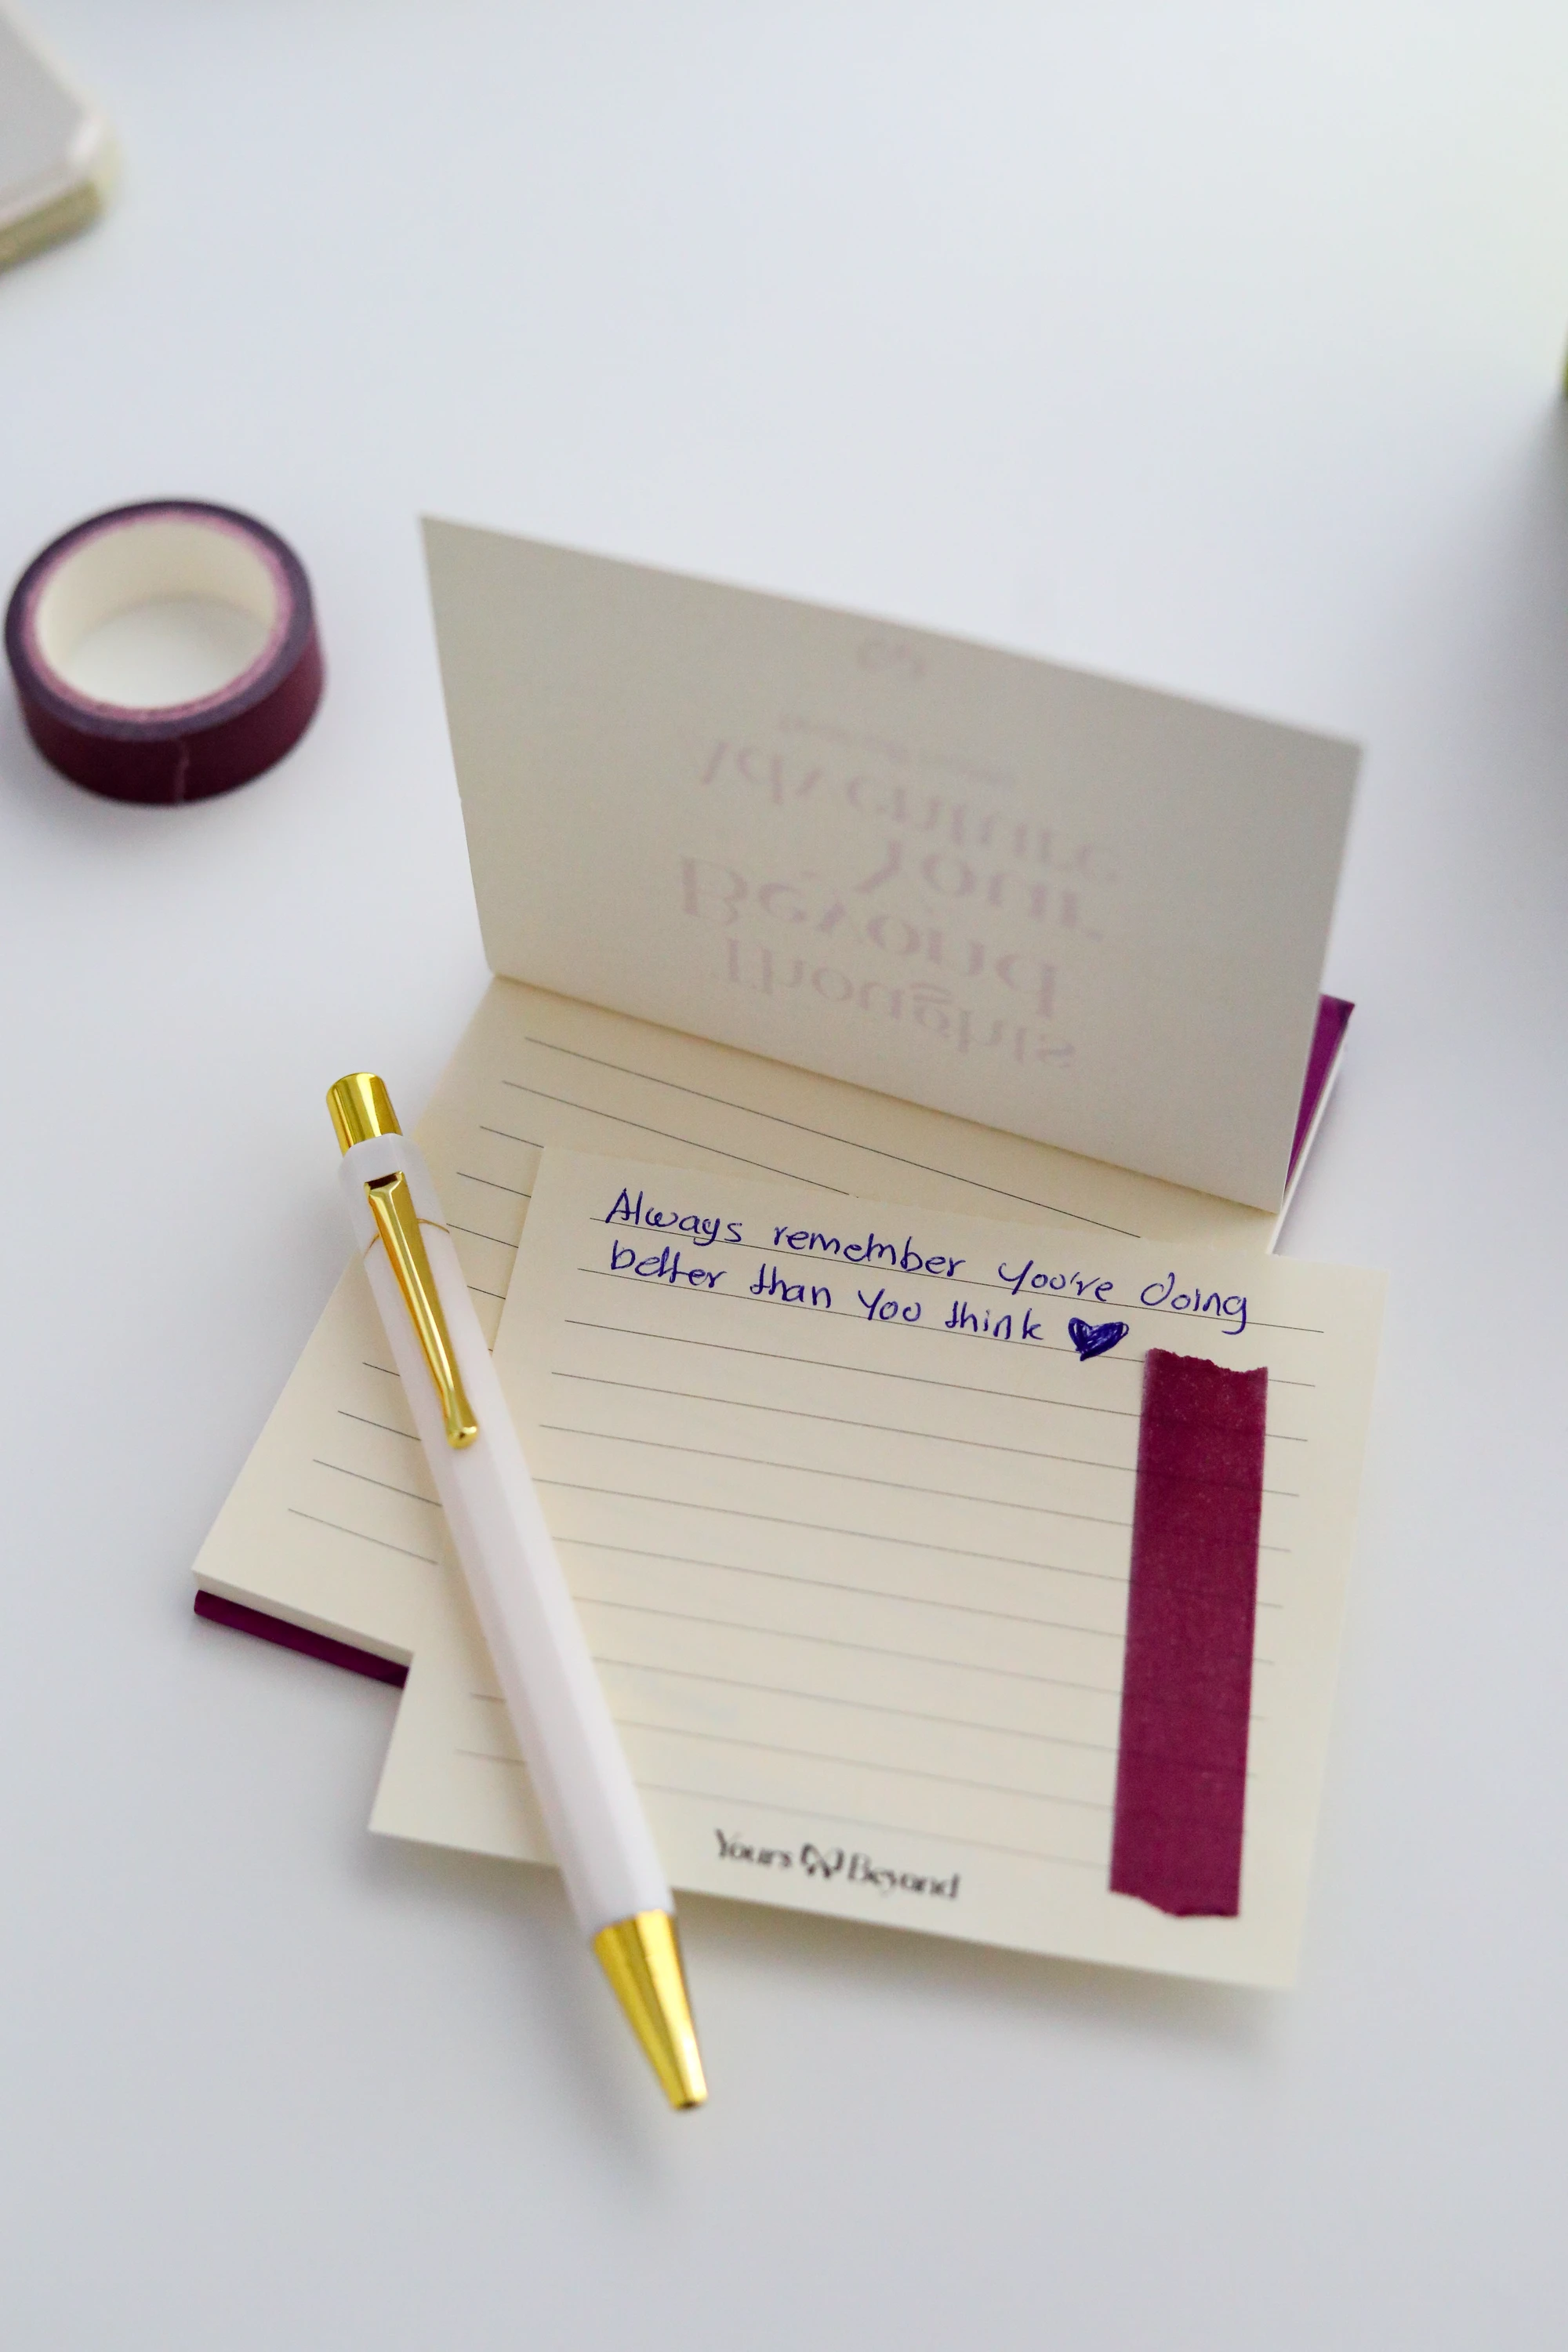 Adventure
Your
Beyond
Thoughts
Always remember you're doing
better than you think
Yours Beyond